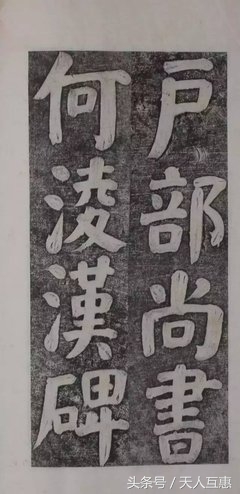 戶部尚書
何淩漢碑
头条号／天人互惠